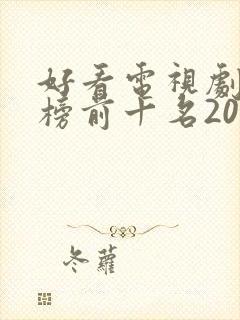 好看電視劇
榜前十名20
冬蘿